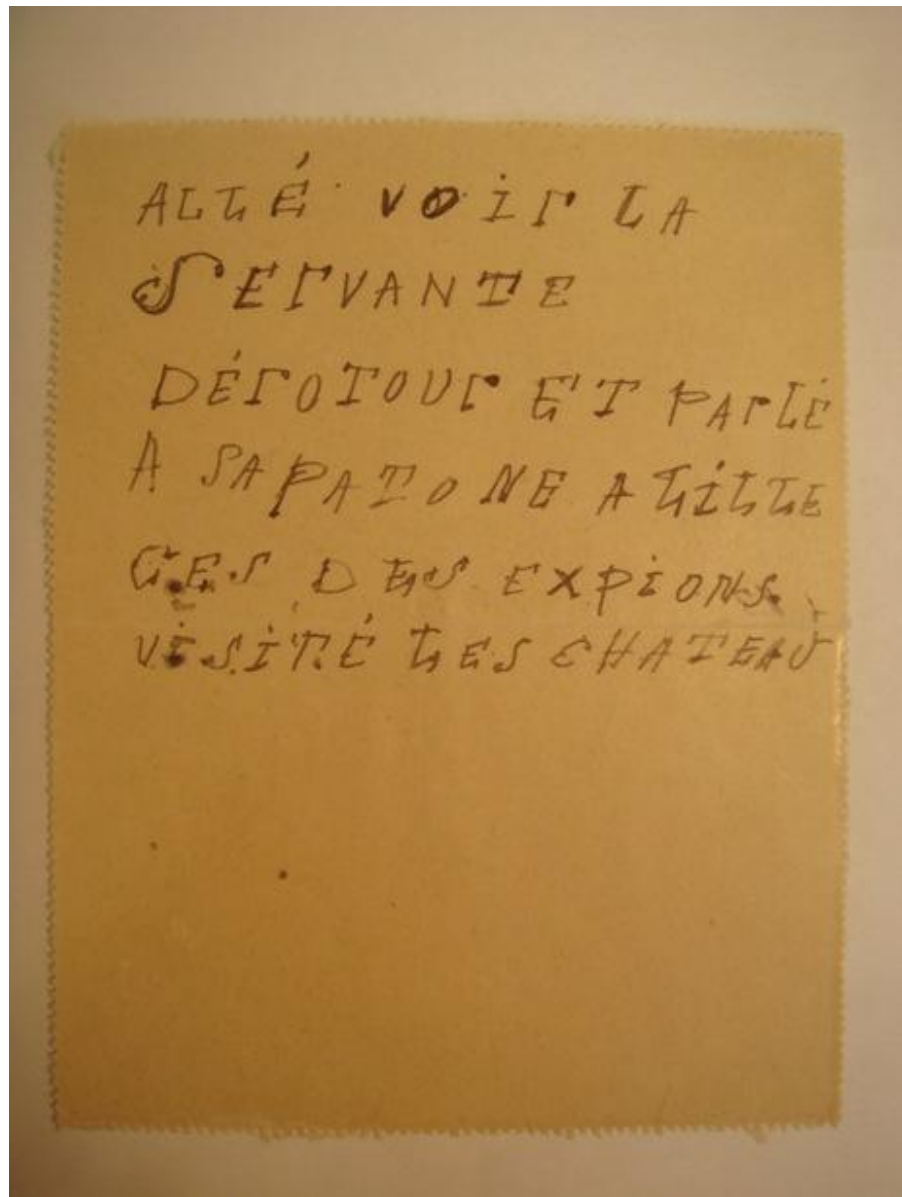 ALLÉ VOIR LA
SERVANTE
DÉROTOUR ET PARLÉ
A SA PATONE A LILLE
CES DES EXPIONS
VISITÉ LES CHATEAU